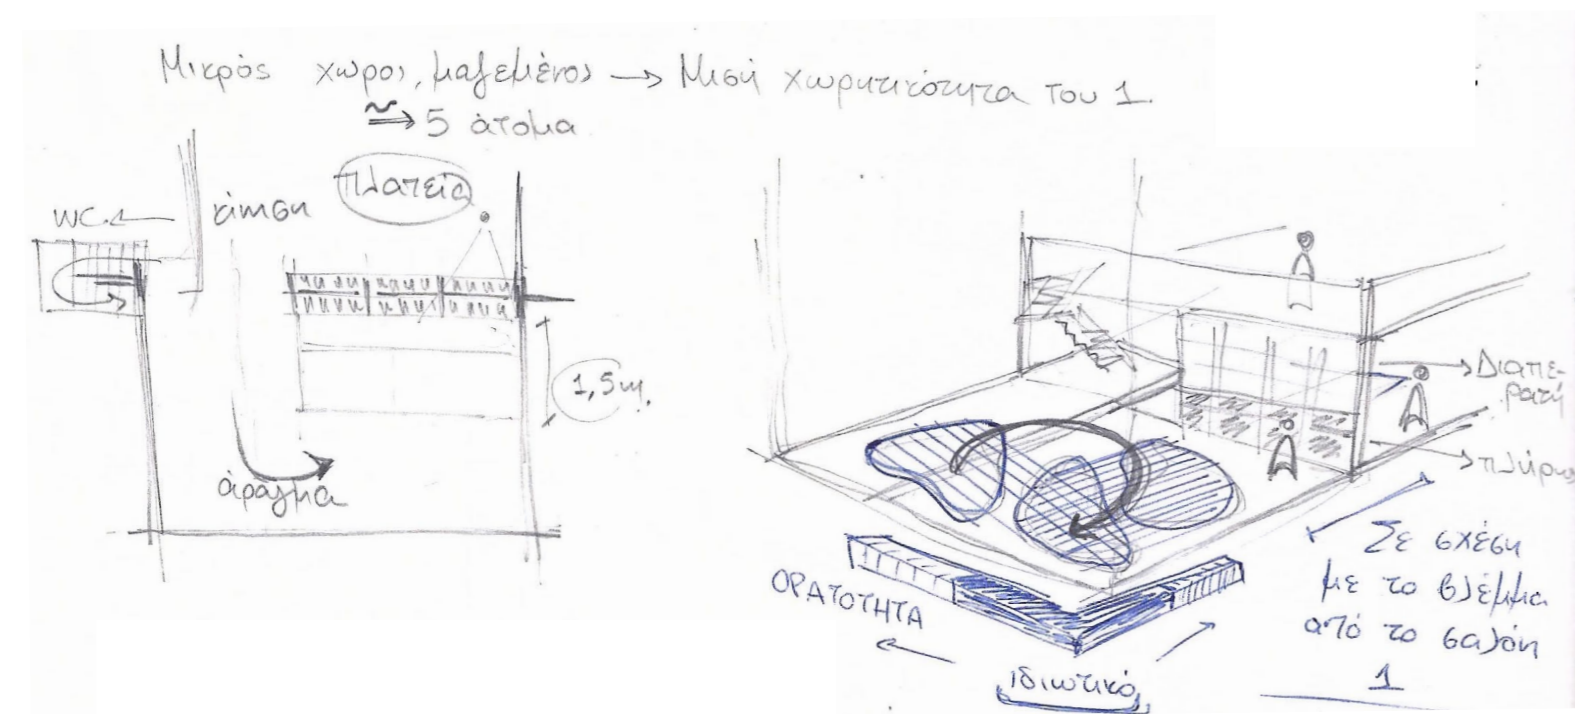 Μικρός χώρος, μαζεμένος → Μισή χωρητικότητα του 1.
≃> 5 άτομα
πλατεία
WC. ←
κίνηση
1,5m.
άραγμα
→ Διαπε-
ρατή
→ πλήρω
ΟΡΑΤΟΤΗΤΑ
ιδιωτικό
Σε σχέση
με το βλέμμα
από το σαλόνι
1